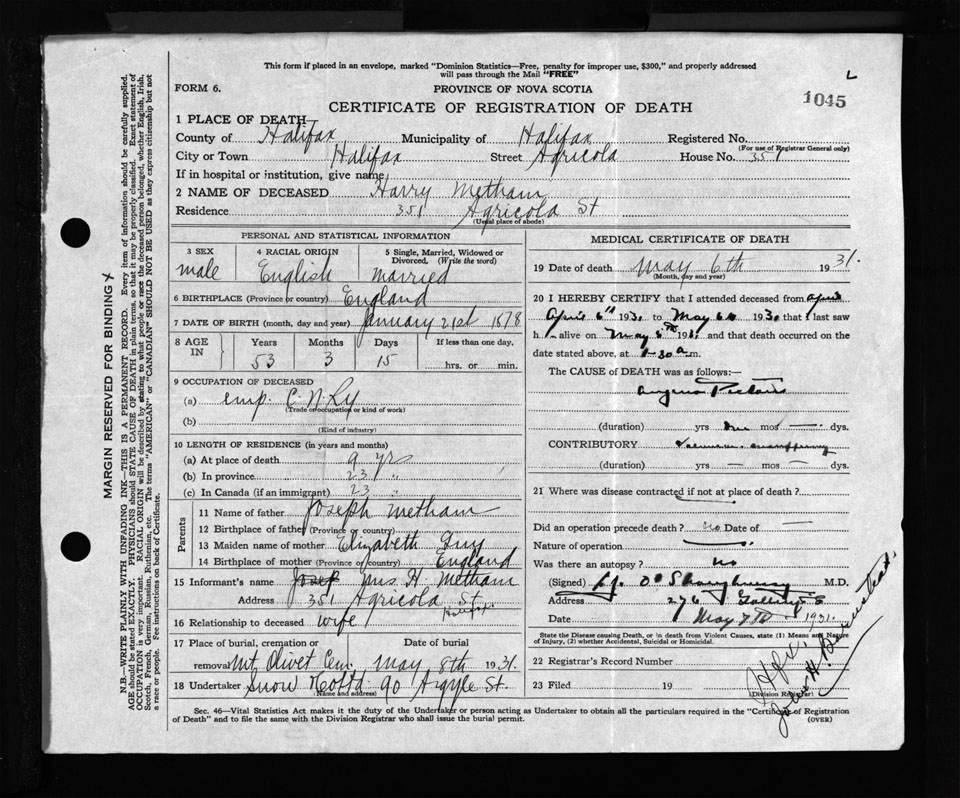 This form if placed in an envelope, marked "Dominion Statistics—Free, penalty for improper use, $300," and properly addressed
will pass through the Mail "FREE"
L
FORM 6.
PROVINCE OF NOVA SCOTIA
1045
CERTIFICATE OF REGISTRATION OF DEATH
1 PLACE OF DEATH
County of Halifax Municipality of Halifax Registered No.
(For use of Registrar General only)
City or Town Halifax Street Agricola House No. 351
If in hospital or institution, give name
2 NAME OF DECEASED Harry Metham
Residence 351 Agricola St
(Usual place of abode)
PERSONAL AND STATISTICAL INFORMATION
3 SEX male
4 RACIAL ORIGIN English
5 Single, Married, Widowed or Divorced, (Write the word) married
6 BIRTHPLACE (Province or country) England
7 DATE OF BIRTH (month, day and year) January 21st 1878
8 AGE IN Years Months Days If less than one day,
53 3 15 hrs. or min.
9 OCCUPATION OF DECEASED
(a) emp. C. N. Ry
(Trade or occupation or kind of work)
(b)
(Kind of industry)
10 LENGTH OF RESIDENCE (in years and months)
(a) At place of death 9 yrs
(b) In province 23 "
(c) In Canada (if an immigrant) 23 "
Parents
11 Name of father Joseph Metham
12 Birthplace of father (Province or country)
13 Maiden name of mother Elizabeth Guy
14 Birthplace of mother (Province or country) England
15 Informant's name Mrs. H. Metham
Address 351 Agricola St. Halifax
16 Relationship to deceased wife
17 Place of burial, cremation or Date of burial
removal Mt Olivet Cem. May 8th 1931.
18 Undertaker Snow & Co Ltd. 90 Argyle St.
(Name and address)
MEDICAL CERTIFICATE OF DEATH
19 Date of death May 6th 1931.
(Month, day and year)
20 I HEREBY CERTIFY that I attended deceased from April
April 6th 1931 to May 6th 1931 that I last saw
h alive on May 5th 1931 and that death occurred on
date stated above, at 1-30 a.m.
The CAUSE of DEATH was as follows:—
Angina Pectoris
(duration) yrs one mos — dys.
CONTRIBUTORY
(duration) yrs — mos — dys.
21 Where was disease contracted if not at place of death?
Did an operation precede death? no Date of —
Nature of operation
Was there an autopsy? no
(Signed) O'Shaughnessy M.D.
Address 276
Date May 7th 1931.
State the Disease causing Death, or in death from Violent Causes, state (1) Means and Nature
of Injury, (2) whether Accidental, Suicidal or Homicidal.
22 Registrar's Record Number
23 Filed 19
(Division Registrar)
Hfx.
John H.
Sec. 46—Vital Statistics Act makes it the duty of the Undertaker or person acting as Undertaker to obtain all the particulars required in the "Certificate of Registration
of Death" and to file the same with the Division Registrar who shall issue the burial permit.
(OVER)
MARGIN RESERVED FOR BINDING
N.B.—WRITE PLAINLY WITH UNFADING INK—THIS IS A PERMANENT RECORD. Every item of information should be carefully supplied.
AGE should be stated EXACTLY. PHYSICIANS should STATE CAUSE OF DEATH in plain terms, so that it may be properly classified. Exact statement of
OCCUPATION is very important. RACIAL ORIGIN will be described by stating to what people or race the deceased person belonged, whether English, Irish,
Scotch, French, German, Russian, Ruthenian, etc. The terms "AMERICAN" or "CANADIAN" SHOULD NOT BE USED as they express citizenship but not
a race or people. See instructions on back of Certificate.